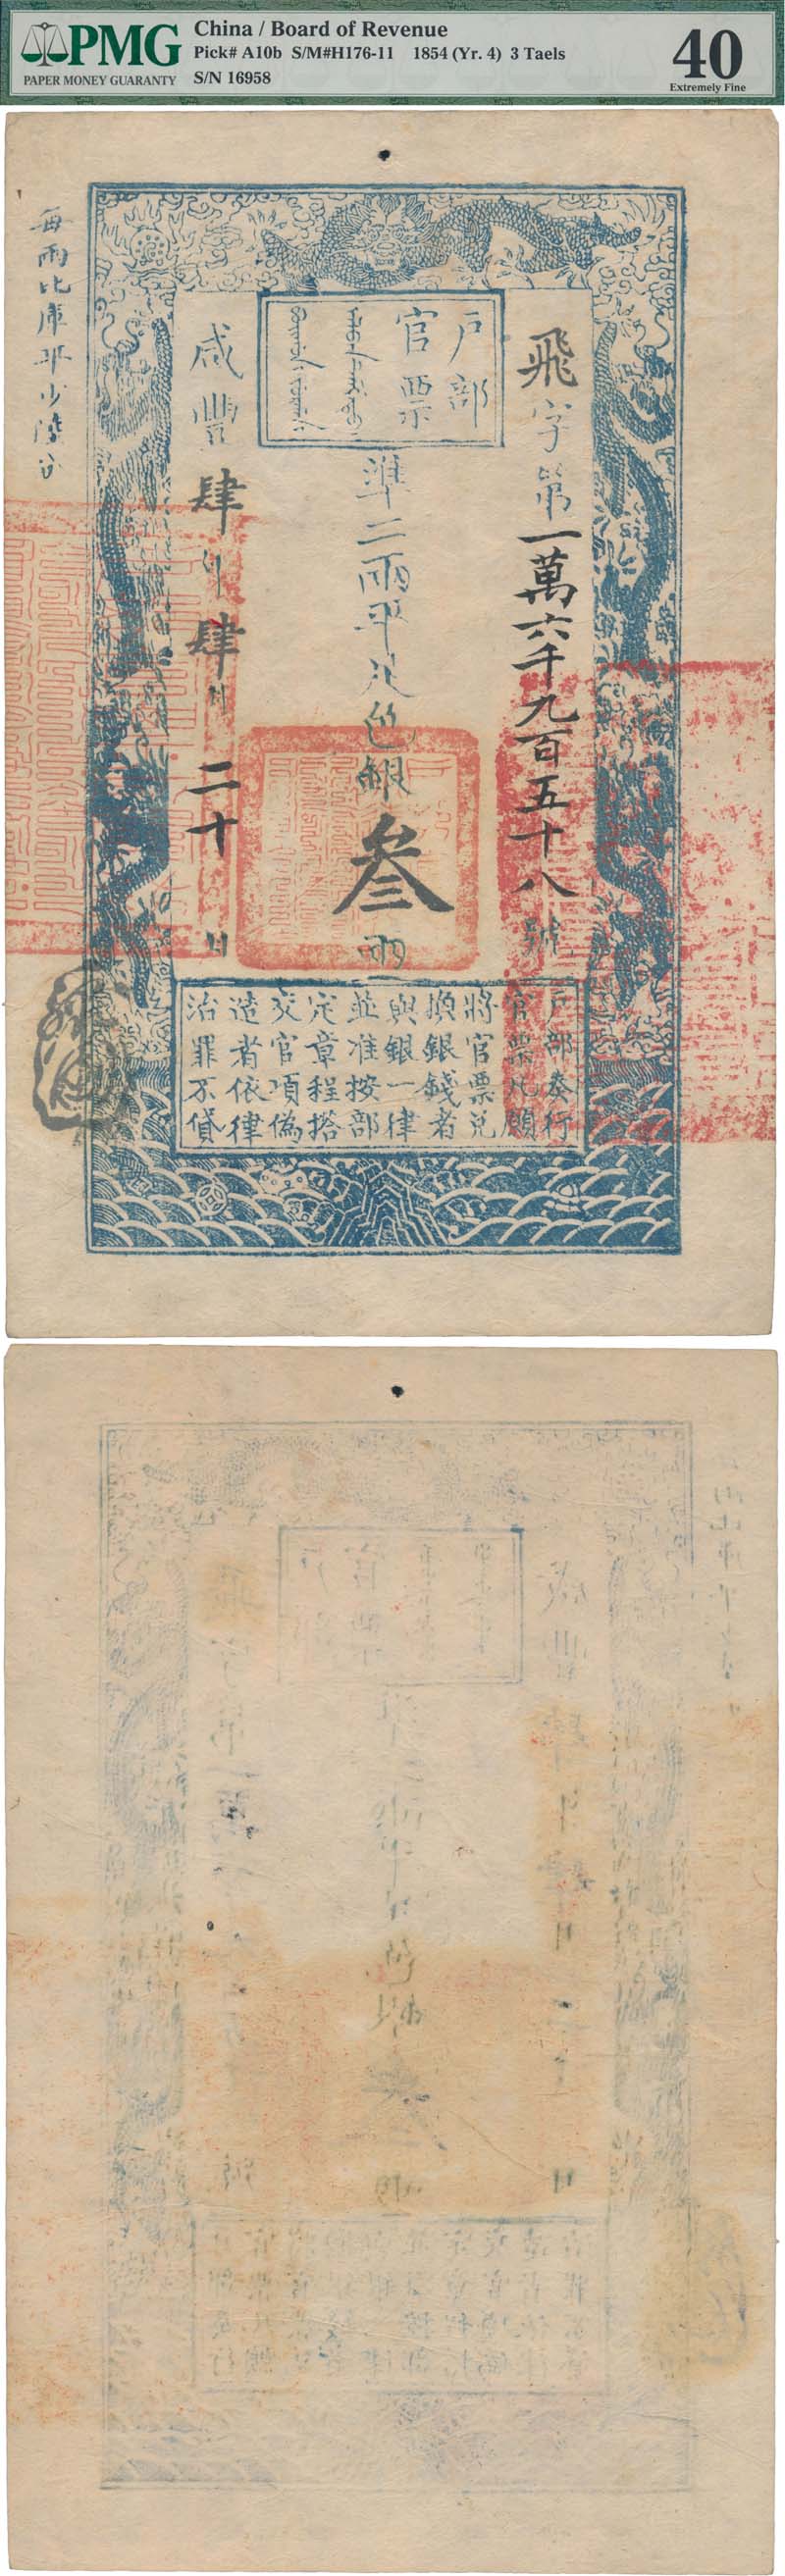 PMG
PAPER MONEY GUARANTY
China / Board of Revenue
Pick# A10b S/M#H176-11 1854 (Yr. 4) 3 Taels
S/N 16958
40
Extremely Fine
戶部
官票
飛字第一萬六千九百五十八號
準二兩平足色銀叄兩
咸豐肆年肆月二十日
每兩比庫平少陸分
戶部奏行
官票凡願
將官票兌
換銀錢者
與銀一律
並准按部
定章程搭
交官項偽
造者依律
治罪不貸